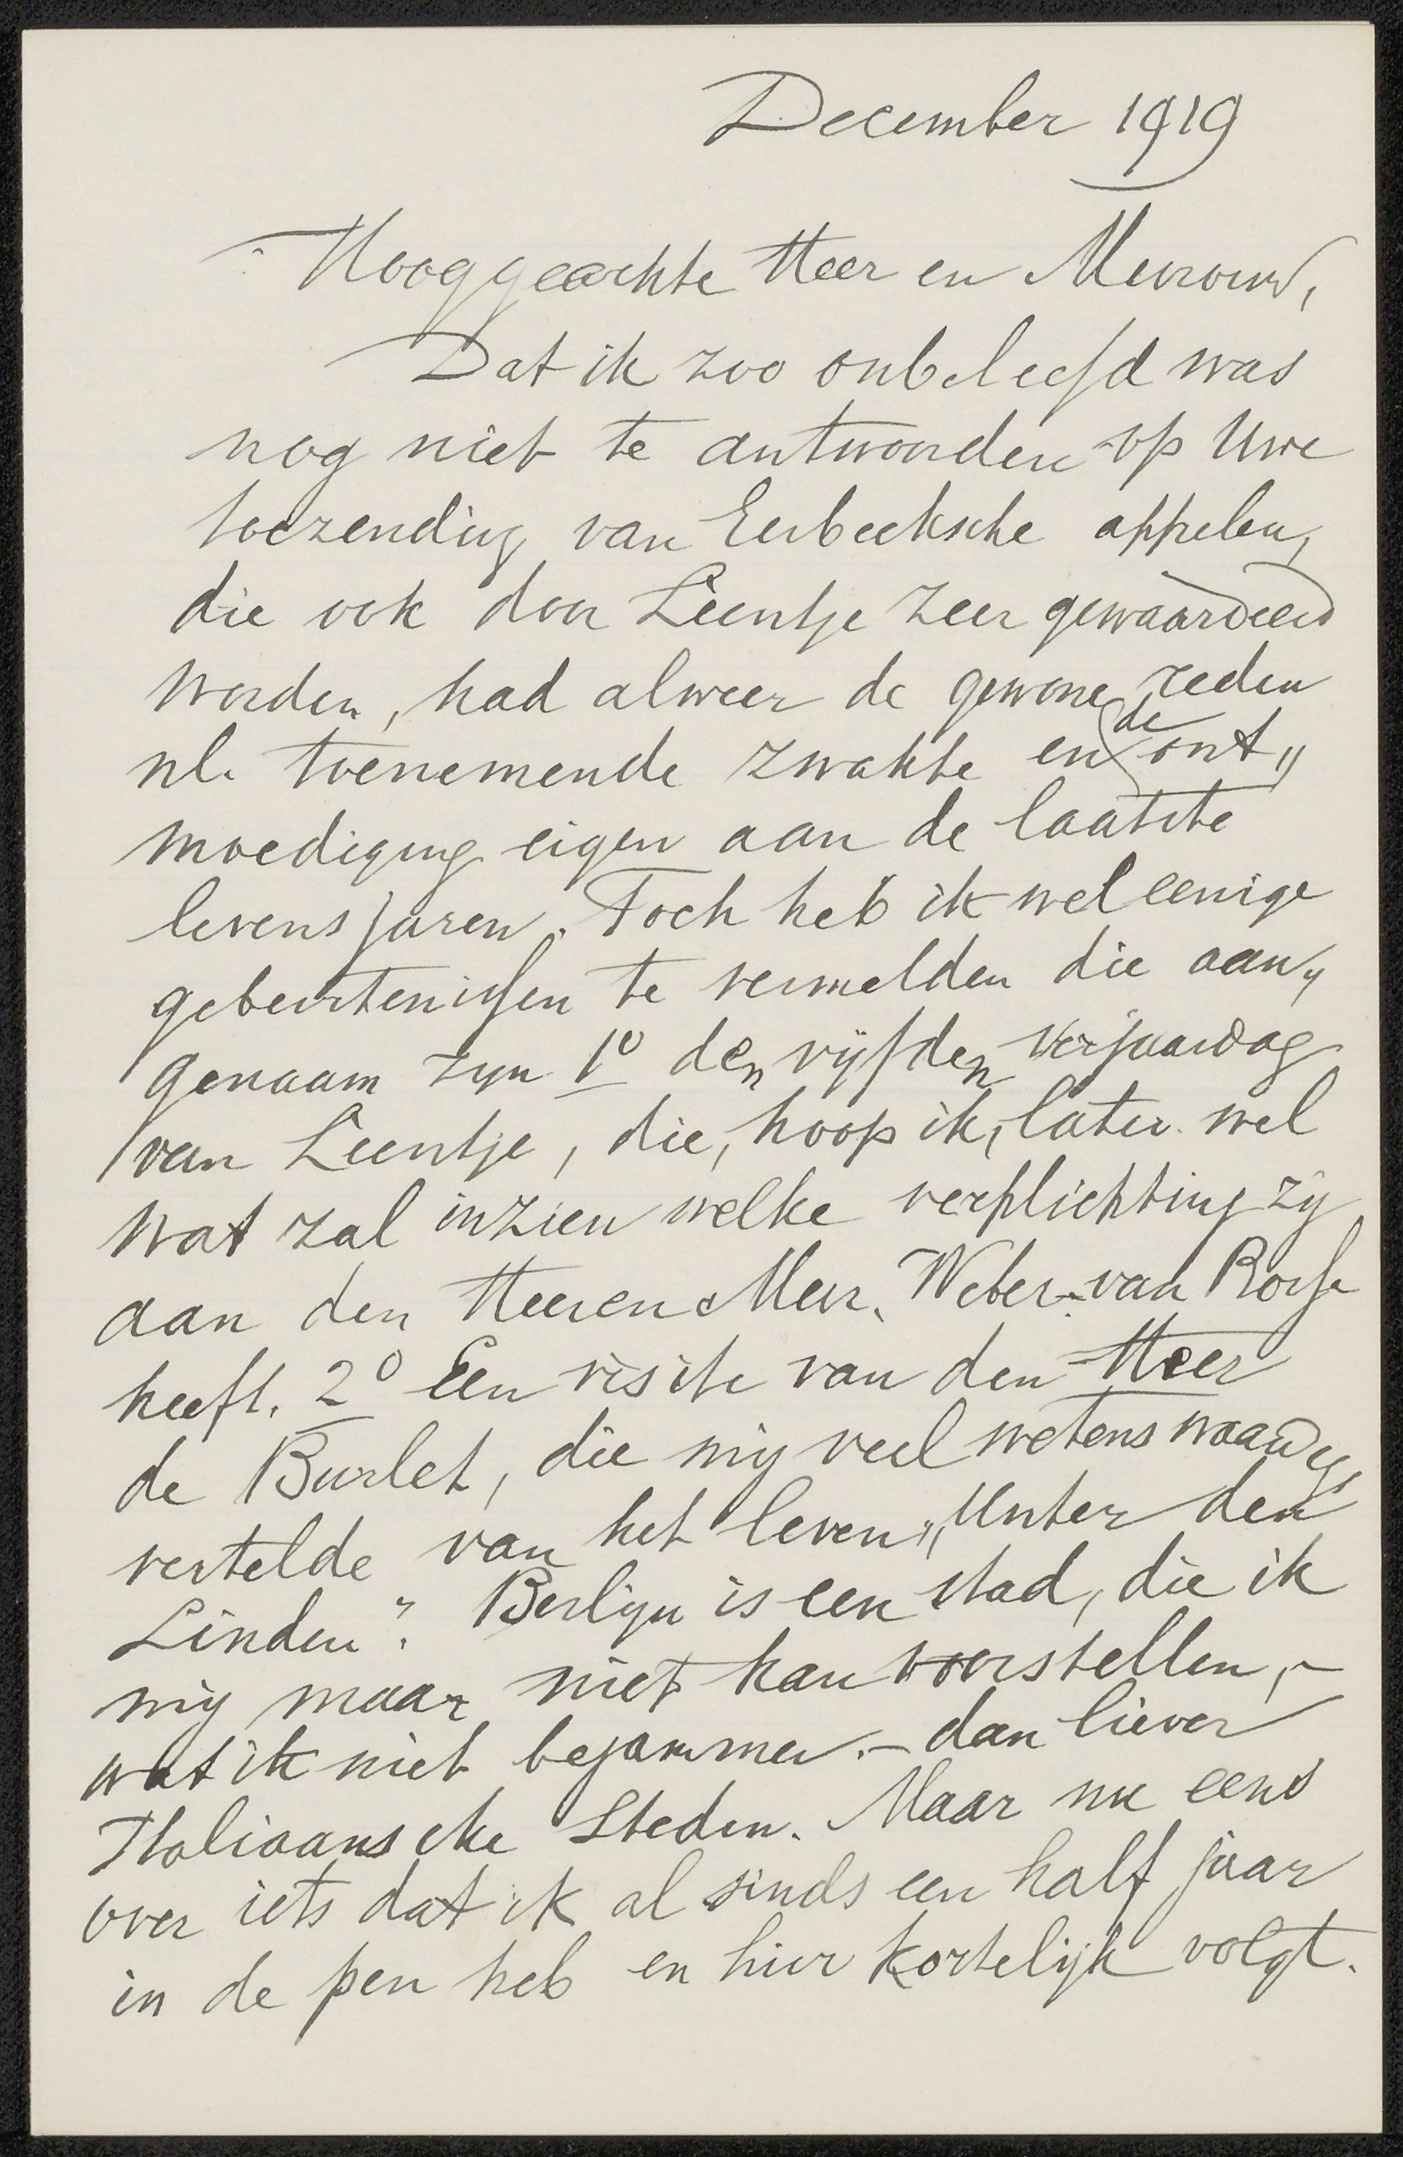 December 1919
Hooggeachte Heer en Mevrouw,
Dat ik zoo onbeleefd was
nog niet te antwoorden op Uwe
toezending van Eerbeeksche appelen,
die ook door Leentje zeer gewaardeerd
worden, had alweer de gewone reden
nl. toenemende zwakte en de ont„
moediging eigen aan de laatste
levensjaren. Toch heb ik wel eenige
gebeurtenissen te vermelden die aan„
genaam zyn 1° den vyfden verjaardag
van Leentje, die, hoop ik, later wel
wat zal inzien welke verplichting zy
aan den Heer en Mevr. Weber-van Bosse
heeft. 2° Een visite van den Heer
de Burlet, die my veel wetenswaardigs
vertelde van het leven „Unter den
Linden". Berlyn is een stad, die ik
my maar niet kan voorstellen, -
wat ik niet bejammer. - dan liever
Italiaansche Steden. Maar nu eens
over iets dat ik al sinds een half jaar
in de pen heb en hier kortelijk volgt.